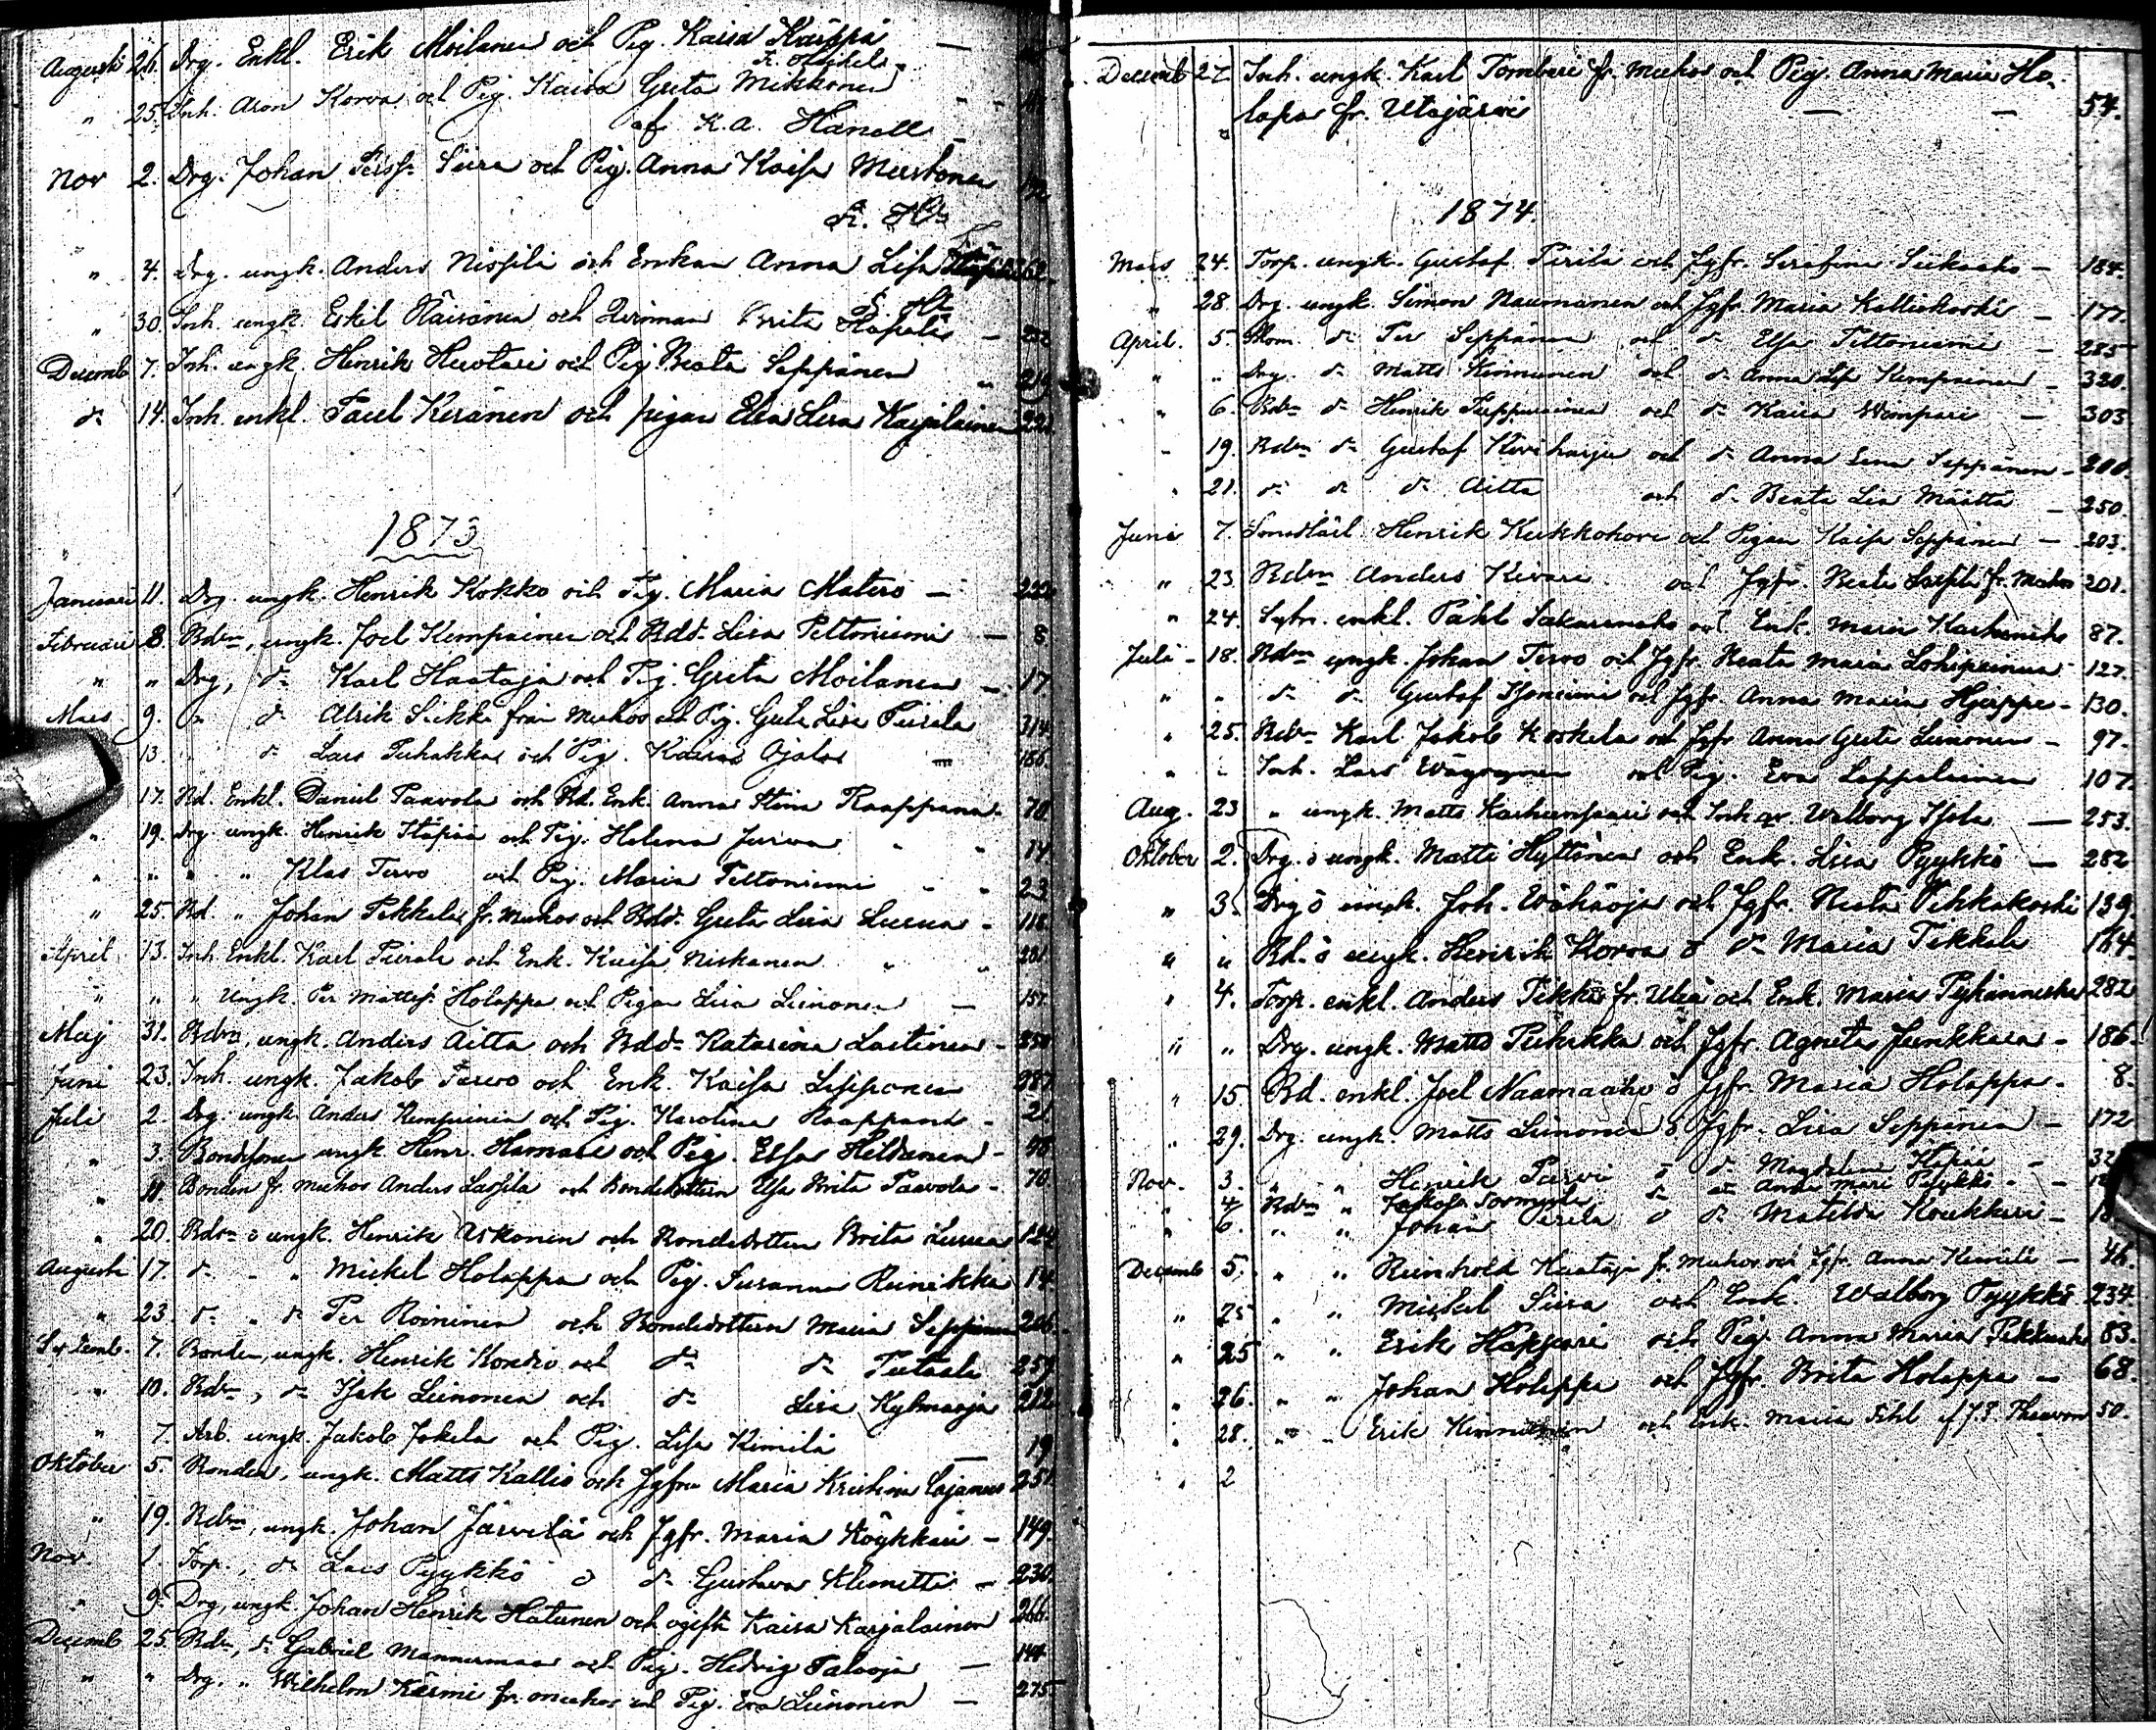 Augusti 26. Drg. Enkl. Erik Moilanen och Pig. Kaisa Karppa —
" 25. Inh. Aron Korva och Pig. Kaisa Greta Mikkonen
af K. A. Hanell
Nov 2. Drg. Johan Perss. Siira och Pig. Anna Kaisa Mustonen
" 4. Drg. ungk. Anders Nissilä och Enkan Anna Lisa
" 30. Inh. ungk. Eskil Räisänen och Qvinnan Brita —
Decemb 7. Inh. ungk. Henrik Huotari och Pig. Beata Seppänen " 219
do 14. Inh. enkl. Paul Keränen och pigan Elsa Lisa Karjalainen
1873
Januari 11. Drg. ungk. Henrik Kokko och Pig. Maria Matero — 222
Februari 8. Bdsn, ungk. Joel Kempainen och Bdd. Lisa Peltoniemi — 8
" " Drg, do Karl Haataja och Pig. Greta Moilanen — 17
Mars 9. do do Alrik Sikki från Muhos och Pig. Greta Lisa Piirala 314
13. do Lars Puhakka och Pig. Kaisa Ojala — 186.
17. Bd. Enkl. Daniel Paavola och Bd. Enk. Anna Stina Kaappana 70
" 19. Drg. ungk. Henrik Itäpää och Pig. Helena Jurva " " 14
" " " " Klas Tervo och Pig. Maria Peltoniemi " " 23
" 25 Bd. " Johan Pikkala fr. Muhos och Bdd. Greta Lisa Lusua - 118.
April 13. Inh. Enkl. Karl Piirala och Enk. Kaisa Niskanen " " 301
" " " Ungk. Per Mattss. Holappa och Pigan Lisa Leinonen — 157.
Maj 31. Bdsn, ungk. Anders Aitta och Bdd. Katarina Laitinen - 250
Juni 23. Inh. ungk. Jakob Tervo och Enk. Kaisa Lipponen 287
Juli 2. Drg. ungk. Anders Kempainen och Pig. Karolina Kaappana - 21
" 3. Bondsonen ungk Henr. Hamari och Pig. Elsa Heikkinen - 98
" 11. Bonden fr. Muhos Anders Lassila och Bondedottern Elsa Brita Paavola - 70.
" 20. Bdsn o ungk. Henrik Askonen och Bondedottern Brita Lusua 124
Augusti 17. do - " Mickel Holappa och Pig. Susanna Reinikka 14.
" 23. do " do Per Roininen och Bondedottern Maria Seppänen 206.
Septemb. 7. Bonden, ungk. Henrik Kontio och do do Tuutaala 259
" 10. Bdsn, do Isak Leinonen och do Lisa Kylmäoja 212
" 7. Arb. ungk. Jakob Jokela och Pig. Lisa Kimilä — 19
Oktober 5. Bonden, ungk. Matts Kallio och Jgfrn Maria Kristina Cajanus 251
" 19. Bdsn, ungk. Johan Järvelä och Jgfr. Maria Köykkäri - 149.
Nov. 1. Torp., do Lars Pyykkö o do Gustava Klemetti — 230.
" 9. Drg, ungk. Johan Henrik Hatunen och ogift Kaisa Karjalainen 266.
Decemb 25. Bdsn, do Gabriel Mannermaa och Pig. Hedvig Paloja — 144
" " Drg. " Wilhelm Kärmi fr. Muhos och Pig. Eva Leinonen — 275
Decemb 27. Inh. ungk. Karl Tombari fr. Muhos och Pig. Anna Maria Ho-
lapa fr. Utajärvi — — 54.
1874.
Mars 24. Torp. ungk. Gustaf Pirilä och Jgfr. Serafina Siikaaho — 184.
" 28. Drg. ungk. Simon Naumanen och Jgfr. Maria Kalliokoski — 177.
April. 5. do Per Seppänen och do Elsa Peltoniemi — 285
" " Drg. do Matts Kinnunen och do Anna Lisa Kempainen - 320.
" 6. Bdsn do Henrik Tuppurainen och do Kaisa Wimpari — 303
" 19. Bdsn do Gustaf Kiviharju och do Anna Lena Seppänen - 200.
" 21. do do do Aitta och do Beata Lisa Määttä — 250.
Juni 7. Henrik Kukkohovi och Pigan Kaisa Seppänen — 203.
" 23. Bdsn Anders Kivari och Jgfr. Beata Lassila fr. Muhos 201.
" 24. Sytn. enkl. Påhl Sakarinaho och Enk. Maria 87.
Juli - 18. Bdsn ungk. Johan Tervo och Jgfr. Beata Maria Lohipeinen 127.
" " do do Gustaf Isoniemi och Jgfr. Anna Maria Hjerppe - 130.
" 25. Bdsn Karl Jakob Koskela och Jgfr Anna Greta Leinonen - 97.
" " Inh. Lars Wäyrynen och Pig. Eva Leppäluinen 107.
Aug. 23 " ungk. Matts Karhunsaari och Inh.qv. Walborg Isola — 253.
Oktober 2. Drg. o ungk. Matti Hyttinen och Enk. Lisa Pyykkö — 282
" 3. Drg o ungk. Joh. Wähäoja och Jgfr. Beata Pihkakoski 139.
" " Bd. o ungk. Henrik Korva o do Maria Pikkala 164.
" 4. Torp. enkl. Anders Pikki fr. Uleå och Enk. Maria 282
" " Drg. ungk. Matts Puhakka och Jgfr. Agneta Junkkara - 186.
" 15 Bd. enkl. Joel Naamaaho o Jgfr. Maria Holappa. 8.
" 29. Drg. ungk. Matts Leinonen o Jgfr. Lisa Seppänen - 172
Nov. 3. " " Henrik Parvi o do Magdalena Itäpää -
" 4. Bdsn " Jakob Sormunen do do Anna Mari Pyykkö. -
" 6. " " Johan Pirilä o do Matilda Koukkari -
Decemb 5. " " Reinhold Haataja fr. Muhos och Jgfr. Anna Kimilä — 46.
" 25 " " Mickel Siira och Enk. Walborg Pyykkö. 234.
" 25 " " Erik Hapsari och Pig. Anna Maria 83.
" 26. " " Johan Holappa och Jgfr. Brita Holappa — 68.
" 28. " " Erik Kinnunen och Enk. Maria Fihl af J. F. Thauvon 50.
" 2